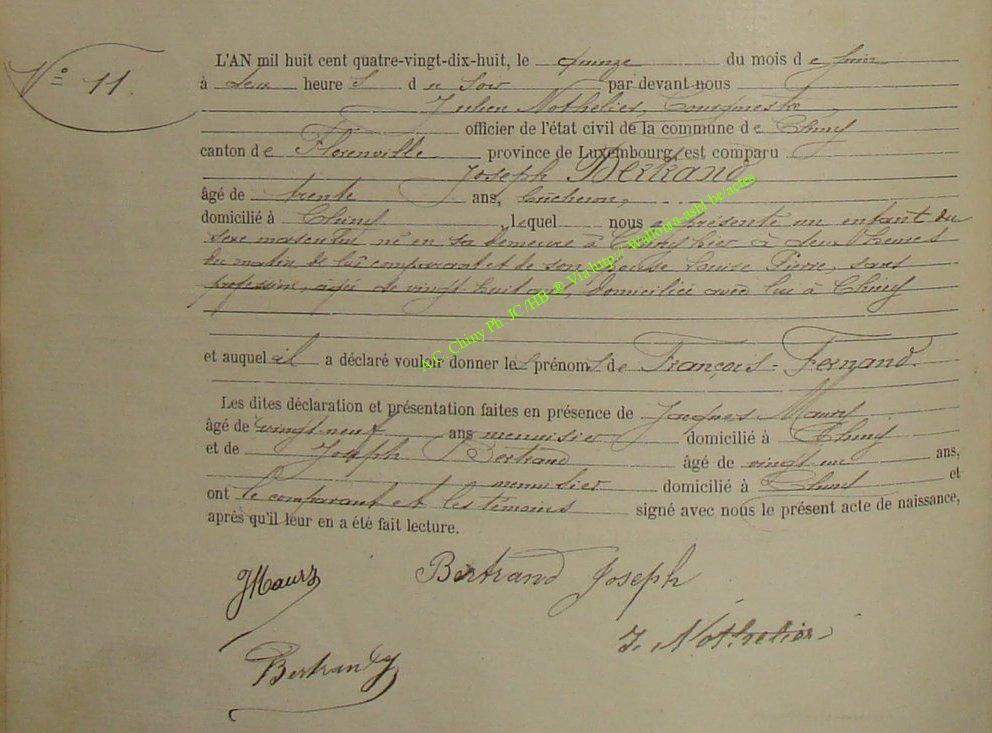 N° 11.
L'AN mil huit cent quatre-vingt-dix-huit, le quinze du mois de Juin
à deux heures du soir par devant nous
Julien Nothelier, Bourgmestre
officier de l'état civil de la commune de Chiny
canton de Florenville province de Luxembourg, est comparu
Joseph Bertrand
âgé de trente ans, bûcheron,
domicilié à Chiny, lequel nous a présenté un enfant du
sexe masculin né en sa demeure à Chiny hier à deux heures
du matin de lui comparant et de son épouse Louise Pierre, sans
profession, agée de vingt-huit ans, domiciliée avec lui à Chiny
et auquel il a déclaré vouloir donner les prénoms de François-Fernand.
Les dites déclaration et présentation faites en présence de Jacques Maury
âgé de vingt-neuf ans menuisier domicilié à Chiny
et de Joseph Bertrand âgé de vingt un ans,
menuisier domicilié à Chiny et
ont le comparant et les témoins signé avec nous le présent acte de naissance,
après qu'il leur en a été fait lecture.
JMaury
Bertrand Joseph
J. Nothelier
Bertrand J
A.C. Chiny Ph. JC/HB ® Via http:// Wallonia-asbl.be/actes